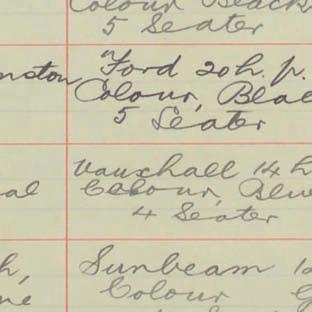 Colour Black
5 Seater
"Ford 20 h. p.
Colour, Blac
5 Seater
Vauxhall 14 h
Colour, Blu
4 Seater
Sunbeam 1
Colour G